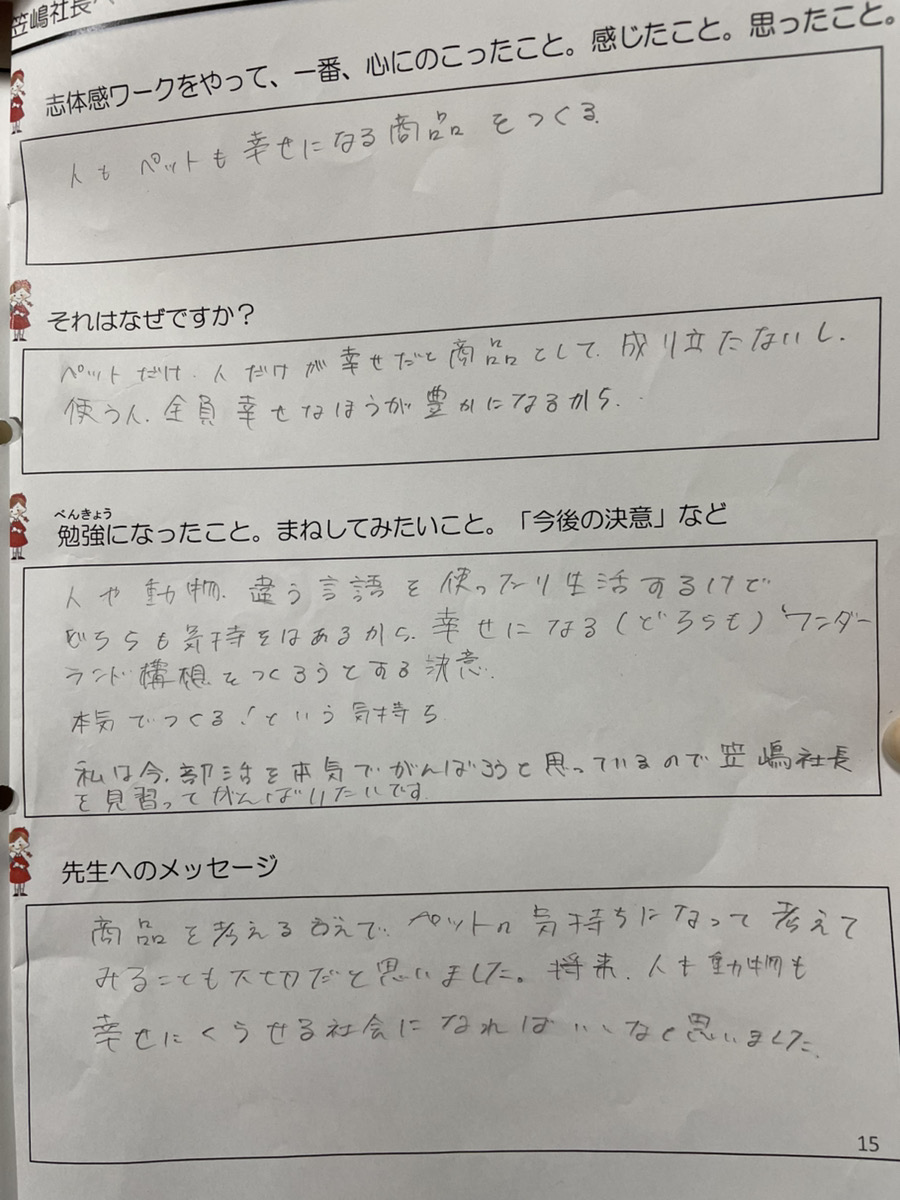 笠嶋社長へ
志体感ワークをやって、一番、心にのこったこと。感じたこと。思ったこと。
人もペットも幸せになる商品をつくる。
それはなぜですか？
ペットだけ、人だけが幸せだと商品として、成り立たないし、
使う人、全員幸せなほうが豊かになるから。
べんきょう
勉強になったこと。まねしてみたいこと。「今後の決意」など
人や動物、違う言語を使ったり生活するけど
どちらも気持ちはあるから、幸せになる(どちらも)ワンダー
ランド構想をつくろうとする決意。
本気でつくる！という気持ち
私は今、部活を本気でがんばろうと思っているので笠嶋社長
を見習ってがんばりたいです。
先生へのメッセージ
商品を考えるうえで、ペットの気持ちになって考えて
みることも大切だと思いました。将来、人も動物も
幸せにくらせる社会になればいいなと思いました。
15